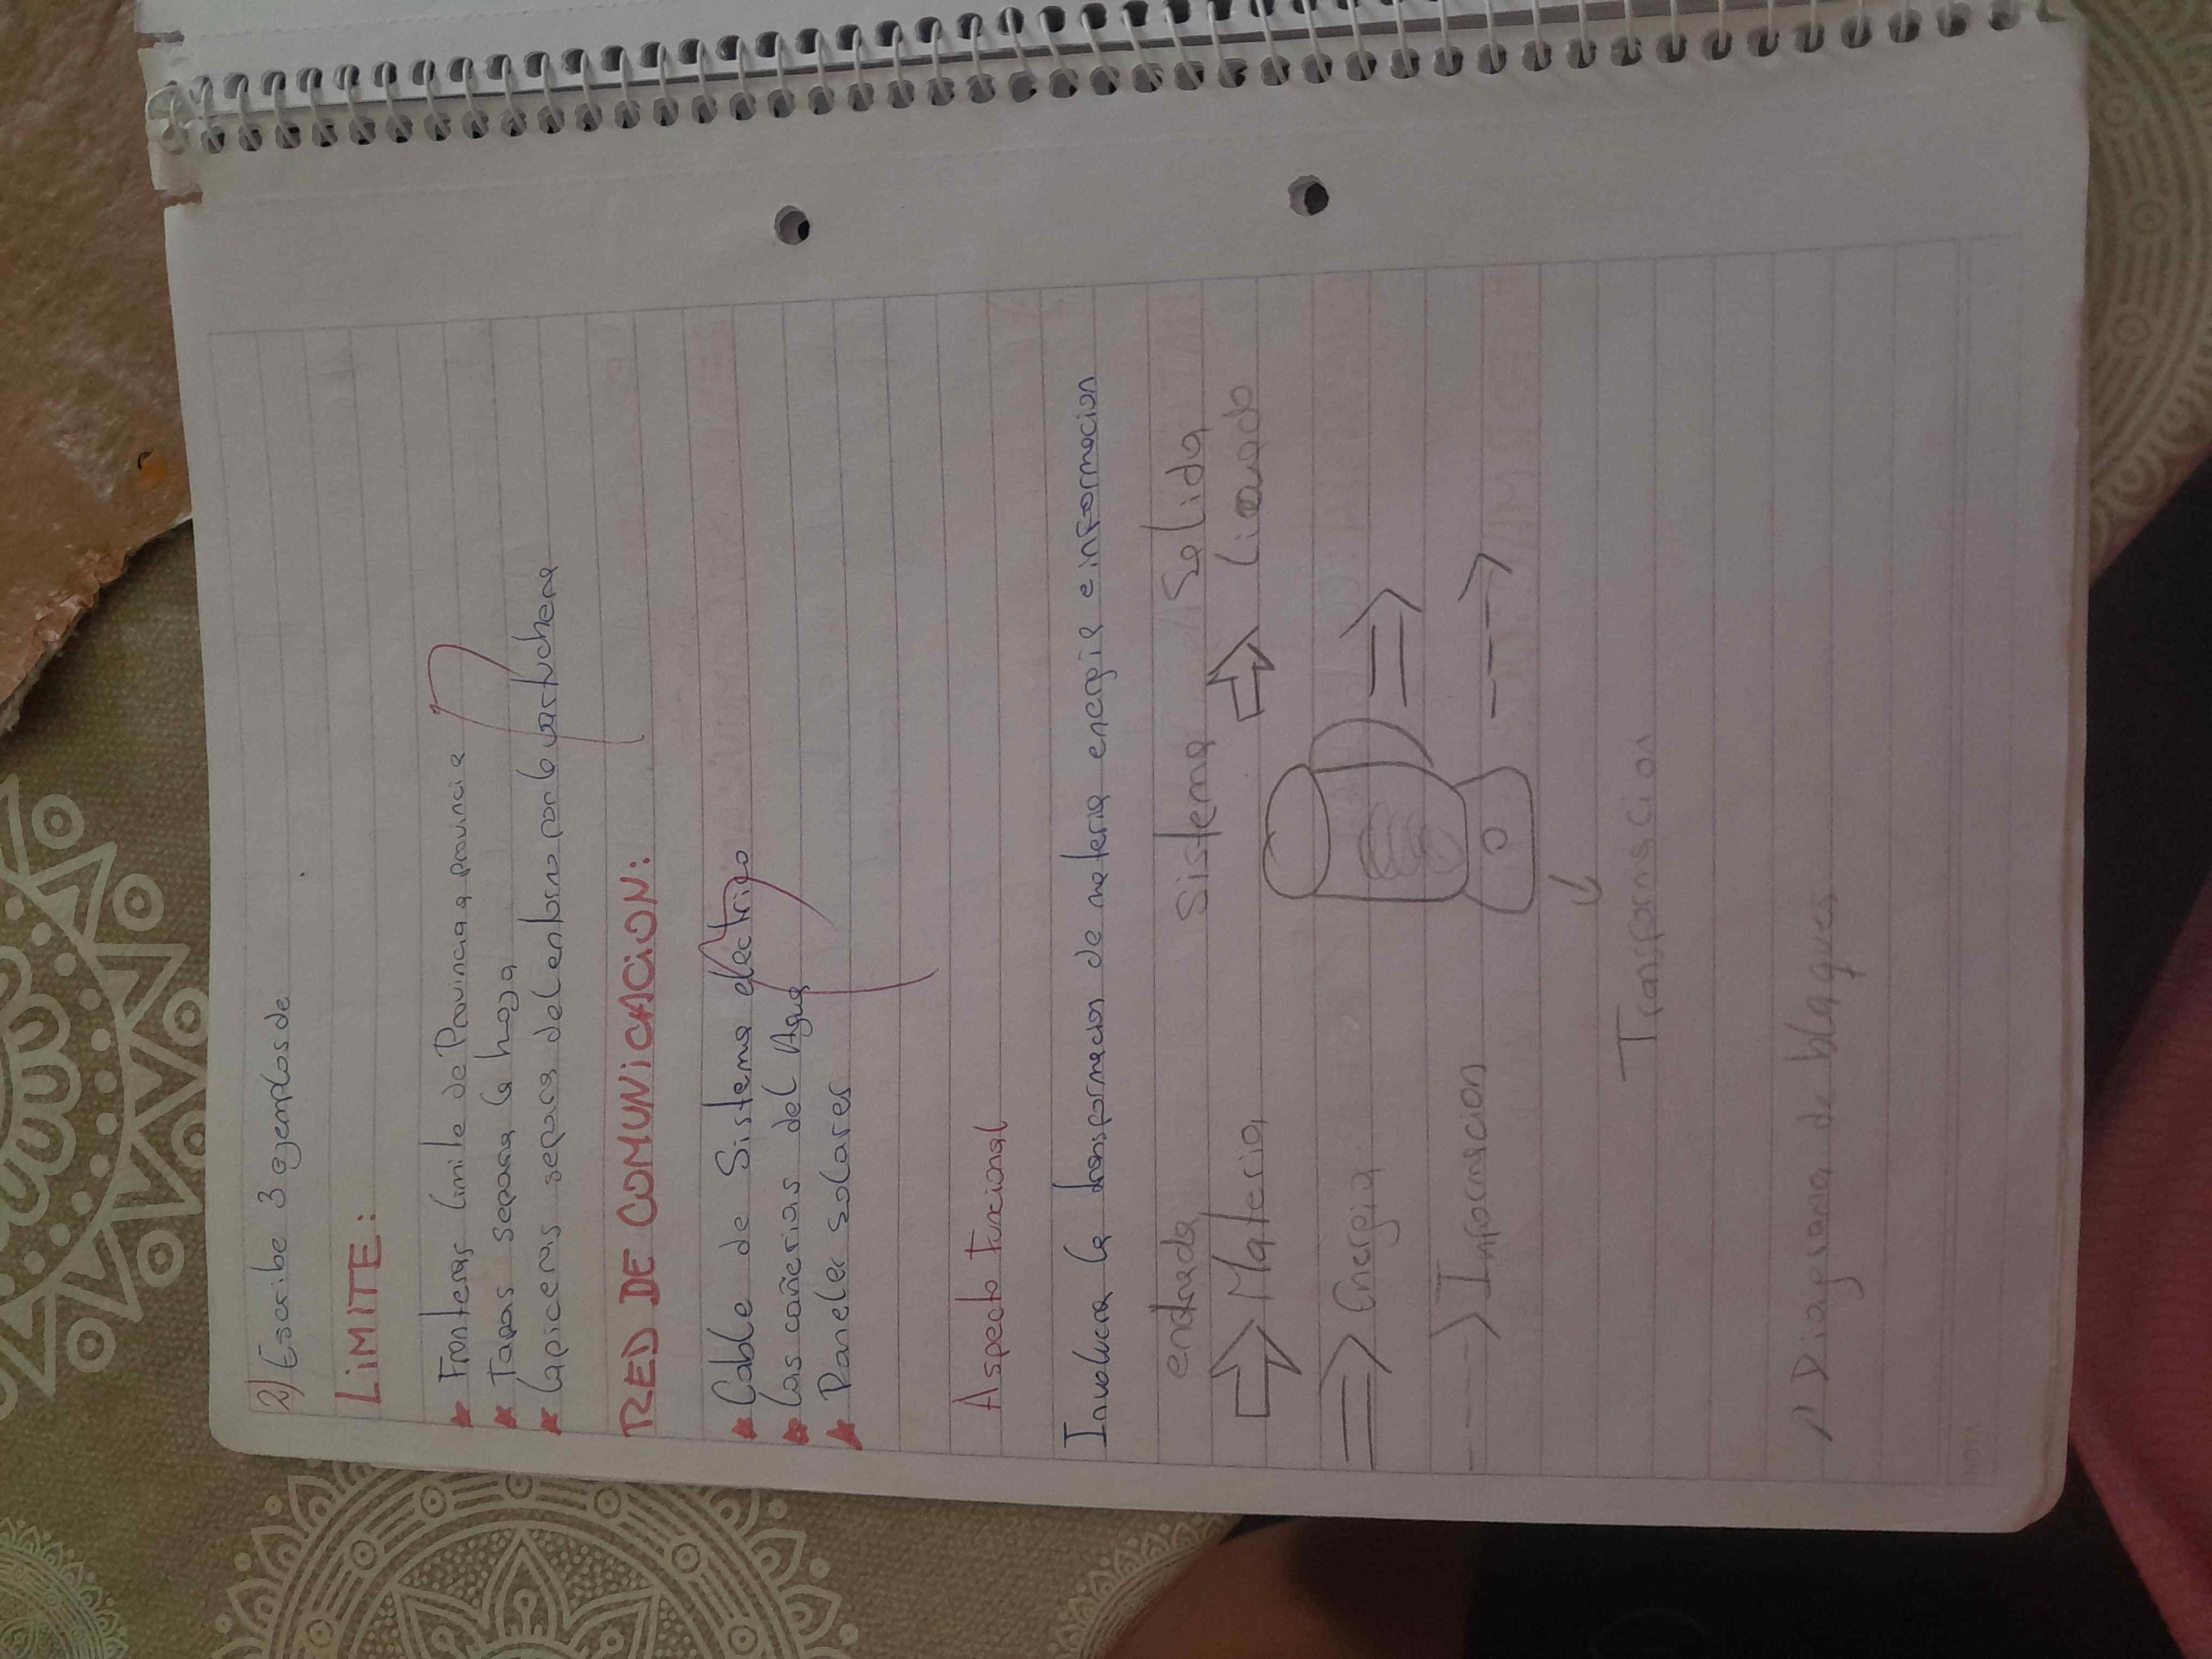 2) Escribe 3 ejemplos de
LiMITE:
Fronteras limite de Provincia a provincia
Tapas separa la hoja
Lapiceras separa del entorno por la cartuchera
RED DE COMUNiCACiON:
Cable de Sistema electrico
Las cañerias del Agua
Paneles solares
Aspecto Funcional
Involucra la transformacion de materia energia e informacion
entrada Sistema Salida
Materia Licuado
Energia
Informacion
Transformacion
1) Diagrama de bloques
NOTA